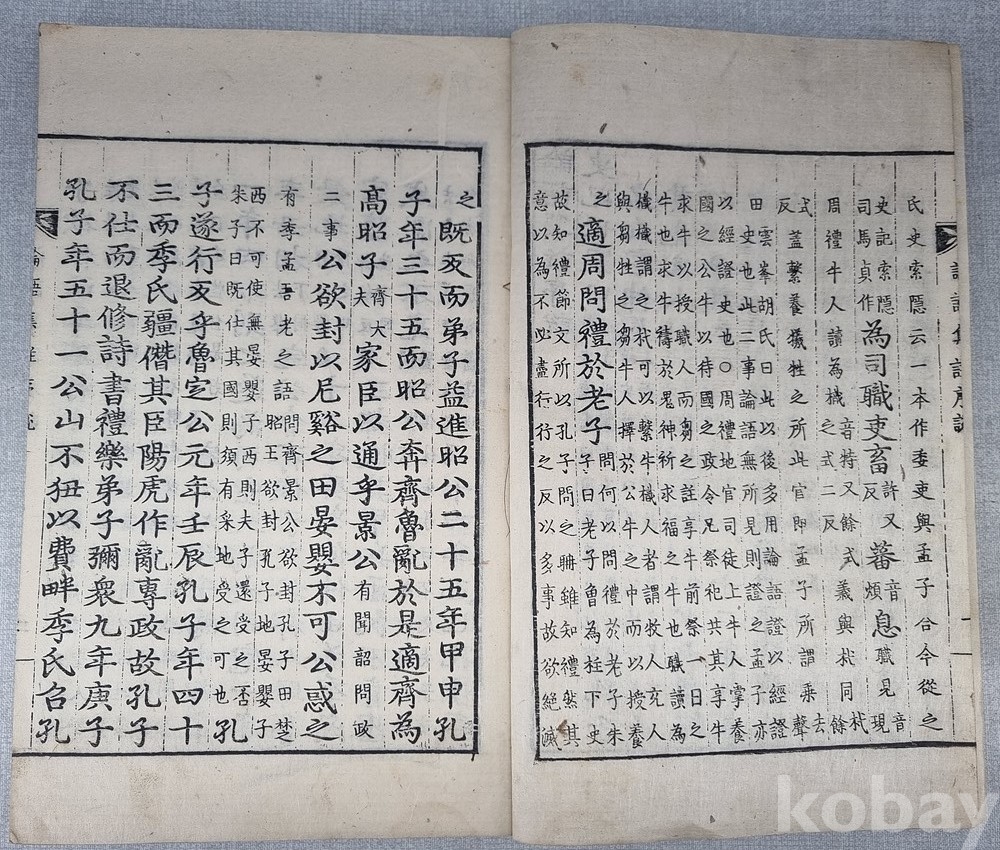 氏史索隱云一本作委吏與孟子合今從之
史記索隱司馬貞作為司職吏畜許又反蕃音煩息職見音現
周禮牛人讀為樴音特又餘式二反義與杙同杙餘
式反蓋繫養犧牲之所此官即孟子所謂乘去聲
田雲峯胡氏曰此以後多用論語證以經證
史也此二事論語無所見則證之孟子亦
以經證史也○周禮地官司徒上牛人掌養
國之公牛以待國之政令凡祭祀共其享牛
求牛以授職人而芻之註享牛前祭一日之
牛也求牛禱於鬼神祈求福之牛也職讀為
樴樴謂之杙可以繫牛樴人者謂牧人充人
與芻牲之芻牛人擇於公牛之中而以授養
之適周問禮於老子問何以問禮於老子朱子曰老子魯為柱下史
故知禮節文所以孔子問之聃雖知禮然其
意以為不必盡行行之反以多事故欲絕滅
之既反而弟子益進昭公二十五年甲申孔
子年三十五而昭公奔齊魯亂於是適齊為
高昭子齊大夫家臣以通乎景公有聞韶問政
二事公欲封以尼谿之田晏嬰不可公惑之
有季孟吾老之語問齊景公欲封孔子田楚昭王欲封孔子地晏嬰子
西不可使無晏嬰子西則夫子還受之否
朱子曰既仕其國則須有采地受之可也孔
子遂行反乎魯定公元年壬辰孔子年四十
三而季氏彊僭其臣陽虎作亂專政故孔子
不仕而退修詩書禮樂弟子彌衆九年庚子
孔子年五十一公山不狃以費畔季氏召孔
kobay